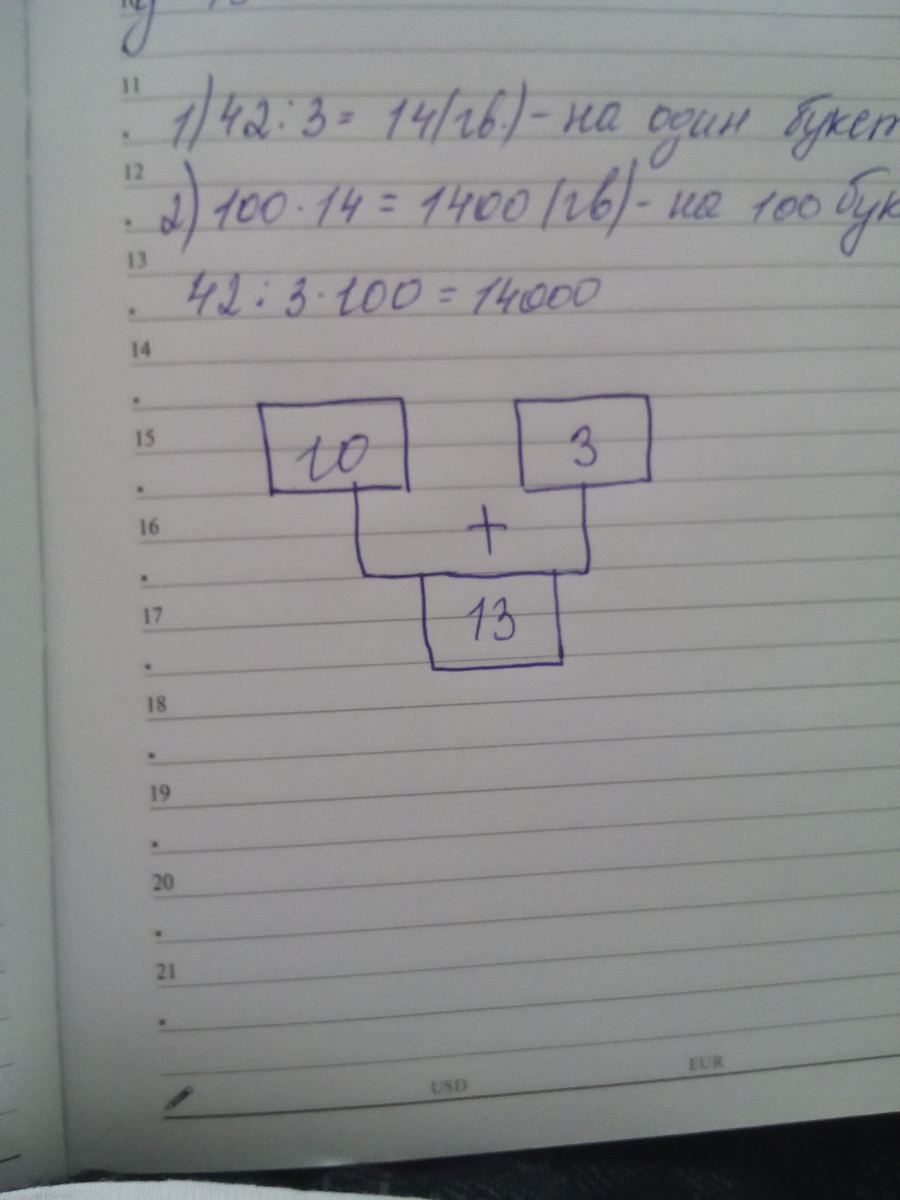 11
1) 42 : 3 = 14 (гв.) - на один букет
12
2) 100 · 14 = 1400 (гв) - на 100 бук
13
42 : 3 · 100 = 14000
14
15
10 3
16
+
17
13
18
19
20
21
USD EUR